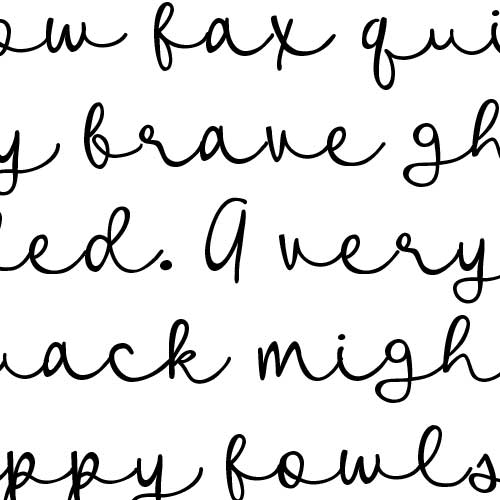 ow fax qui
y brave gh
ed. A very
uack migh
ppy fowls